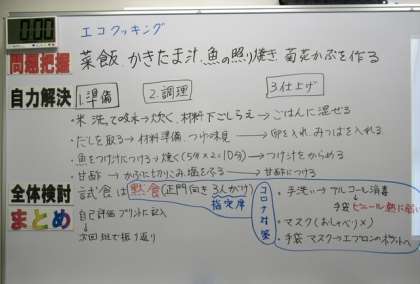 0:00
エコクッキング
問題把握
菜飯 かきたま汁 魚の照り焼き 菊花かぶを作る
自力解決
1.準備 2.調理 3.仕上げ
・米洗って吸水→炊く、材料下ごしらえ→ごはんに混ぜる
・だしを取る→材料準備、つけ味見→卵を入れ、みつばを入れる
・魚をつけ汁につける→焼く(5分×2=10分)→つけ汁をからめる
・甘酢→かぶに切りこみ、塩をふる→甘酢につける
全体検討
試食は黙食(正門向き 3人がけ)
指定席
まとめ
自己評価プリントに記入
↓
次回班で振り返り
コロナ対策
・手洗い→アルコール消毒
↓
手袋 ビニール熱に弱い
・マスク(おしゃべり×)
・手袋 マスク→エプロンのポケットへ